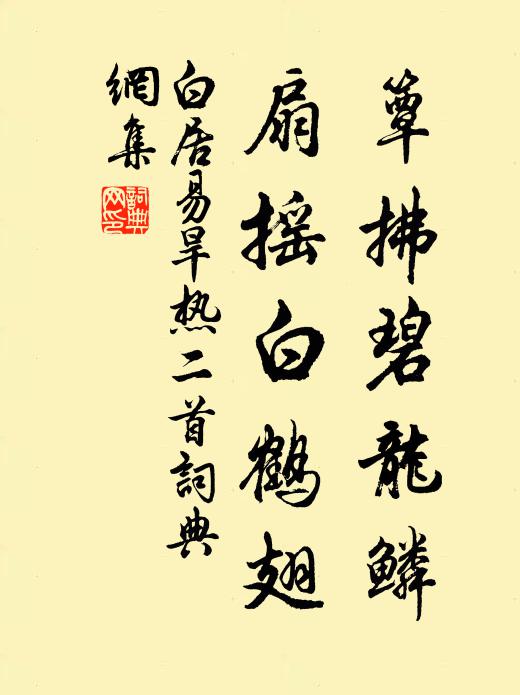 簟拂碧龍鱗
扇摇白鶴翅
白居易旱热二首詞典
網集
詞典網印